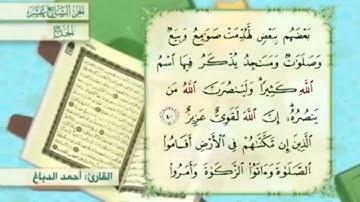 الجزء السابع عشر
الحج
بَعْضَهُم بِبَعْضٍ لَّهُدِّمَتْ صَوَامِعُ وَبِيَعٌ
وَصَلَوَاتٌ وَمَسَاجِدُ يُذْكَرُ فِيهَا اسْمُ
اللَّهِ كَثِيرًا ۗ وَلَيَنصُرَنَّ اللَّهُ مَن
يَنصُرُهُ ۗ إِنَّ اللَّهَ لَقَوِيٌّ عَزِيزٌ ٤٠
الَّذِينَ إِن مَّكَّنَّاهُمْ فِي الْأَرْضِ أَقَامُوا
الصَّلَوٰةَ وَءَاتَوُا الزَّكَوٰةَ وَأَمَرُوا
القارئ: أحمد الدباغ